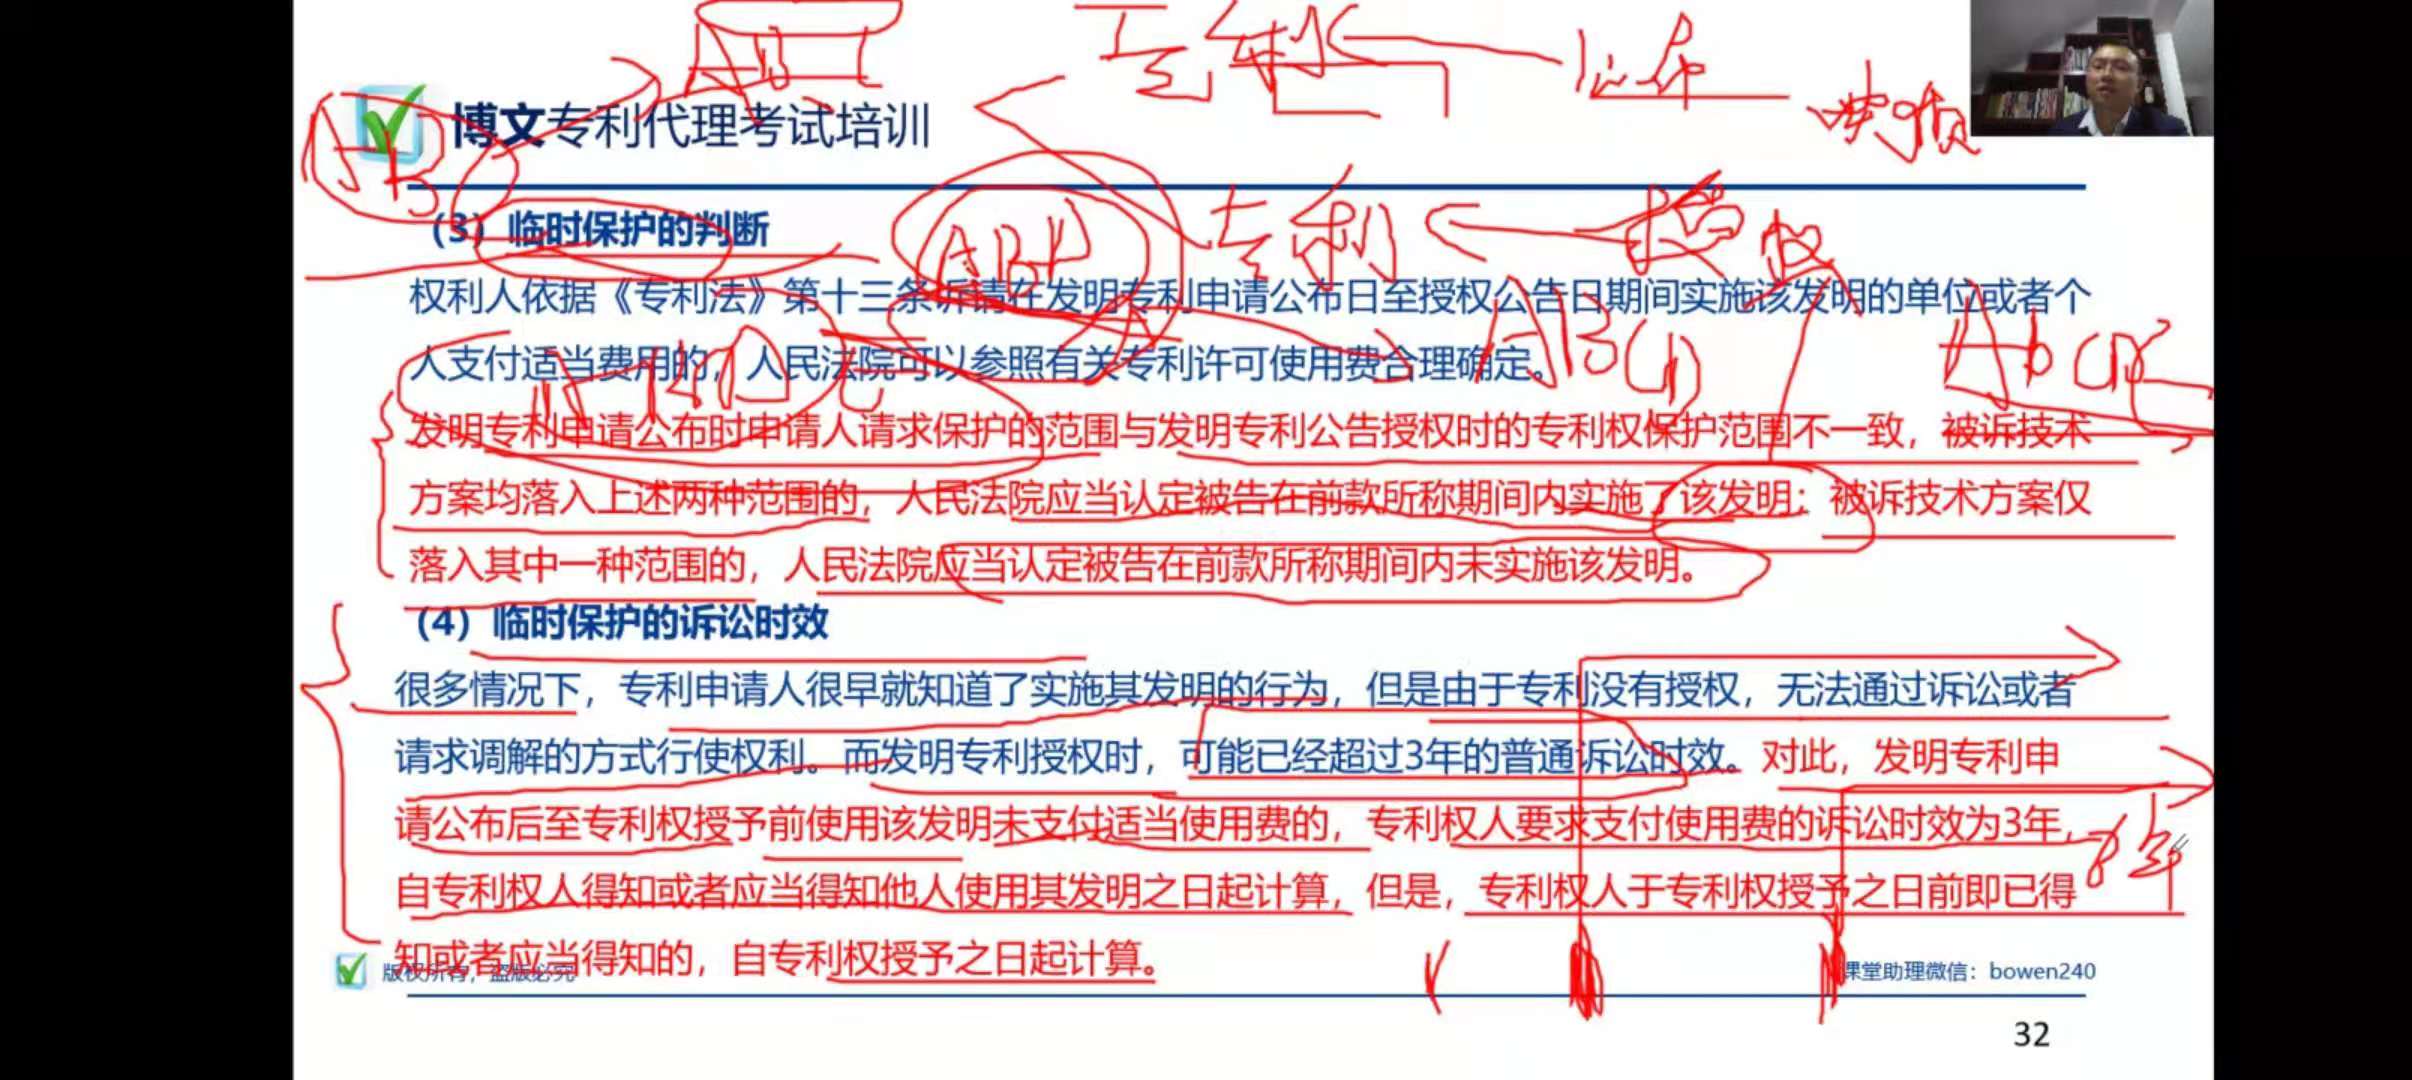 博文专利代理考试培训
（3）临时保护的判断
权利人依据《专利法》第十三条诉请在发明专利申请公布日至授权公告日期间实施该发明的单位或者个
人支付适当费用的，人民法院可以参照有关专利许可使用费合理确定。
发明专利申请公布时申请人请求保护的范围与发明专利公告授权时的专利权保护范围不一致，被诉技术
方案均落入上述两种范围的，人民法院应当认定被告在前款所称期间内实施了该发明；被诉技术方案仅
落入其中一种范围的，人民法院应当认定被告在前款所称期间内未实施该发明。
（4）临时保护的诉讼时效
很多情况下，专利申请人很早就知道了实施其发明的行为，但是由于专利没有授权，无法通过诉讼或者
请求调解的方式行使权利。而发明专利授权时，可能已经超过3年的普通诉讼时效。对此，发明专利申
请公布后至专利权授予前使用该发明未支付适当使用费的，专利权人要求支付使用费的诉讼时效为3年，
自专利权人得知或者应当得知他人使用其发明之日起计算，但是，专利权人于专利权授予之日前即已得
知或者应当得知的，自专利权授予之日起计算。
版权所有，盗版必究
课堂助理微信：bowen240
32
专利
授权